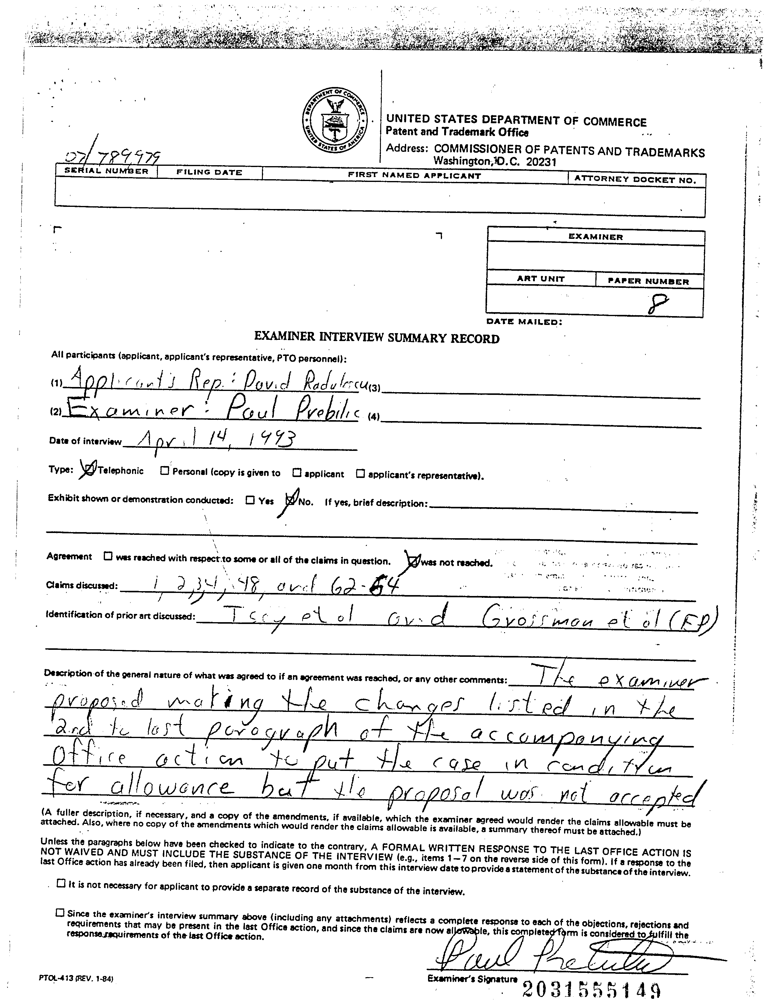 DEPARTMENT OF COMMERCE
UNITED STATES OF AMERICA
UNITED STATES DEPARTMENT OF COMMERCE
Patent and Trademark Office
Address: COMMISSIONER OF PATENTS AND TRADEMARKS
Washington, D.C. 20231
07/789,979
SERIAL NUMBER FILING DATE FIRST NAMED APPLICANT ATTORNEY DOCKET NO.
EXAMINER
ART UNIT PAPER NUMBER
8
DATE MAILED:
EXAMINER INTERVIEW SUMMARY RECORD
All participants (applicant, applicant's representative, PTO personnel):
(1) Applicant's Rep.: David Radulescu (3)
(2) Examiner: Paul Prebilic (4)
Date of interview April 14, 1993
Type: Telephonic Personal (copy is given to applicant applicant's representative).
Exhibit shown or demonstration conducted: Yes No. If yes, brief description:
Agreement was reached with respect to some or all of the claims in question. was not reached.
Claims discussed: 1, 2, 34, 48, and 62-64
Identification of prior art discussed: et al and Grossman et al (EP)
Description of the general nature of what was agreed to if an agreement was reached, or any other comments: The examiner
proposed making the changes listed in the
2nd to last paragraph of the accompanying
Office action to put the case in condition
for allowance but the proposal was not accepted
(A fuller description, if necessary, and a copy of the amendments, if available, which the examiner agreed would render the claims allowable must be
attached. Also, where no copy of the amendments which would render the claims allowable is available, a summary thereof must be attached.)
Unless the paragraphs below have been checked to indicate to the contrary, A FORMAL WRITTEN RESPONSE TO THE LAST OFFICE ACTION IS
NOT WAIVED AND MUST INCLUDE THE SUBSTANCE OF THE INTERVIEW (e.g., items 1–7 on the reverse side of this form). If a response to the
last Office action has already been filed, then applicant is given one month from this interview date to provide a statement of the substance of the interview.
It is not necessary for applicant to provide a separate record of the substance of the interview.
Since the examiner's interview summary above (including any attachments) reflects a complete response to each of the objections, rejections and
requirements that may be present in the last Office action, and since the claims are now allowable, this completed form is considered to fulfill the
response requirements of the last Office action.
Paul Prebilic
PTOL-413 (REV. 1-84)
Examiner's Signature
2031555149